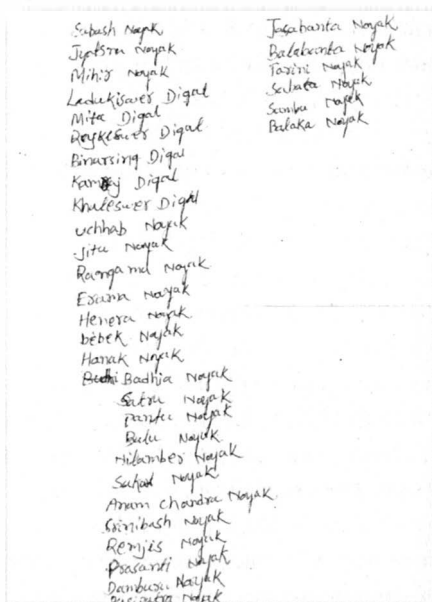 Subash Nayak
Jyotsna Nayak
Mihir Nayak
Ladukiswer Digal
Mita Digal
Digal
Binarsing Digal
Digal
Khaleswer Digal
uchhab Nayak
Jitu Nayak
Nayak
Nayak
Henera Nayak
bebek Nayak
Hanak Nayak
Badhia Nayak
Satru Nayak
Pantu Nayak
Bulu Nayak
Nilamber Nayak
Nayak
Anam chandra Nayak
Srinibash Nayak
Remjis Nayak
Prasanti Nayak
Damburu Nayak
Nayak
Jasabanta Nayak
Balabanta Nayak
Tarini Nayak
Nayak
Nayak
Balaka Nayak